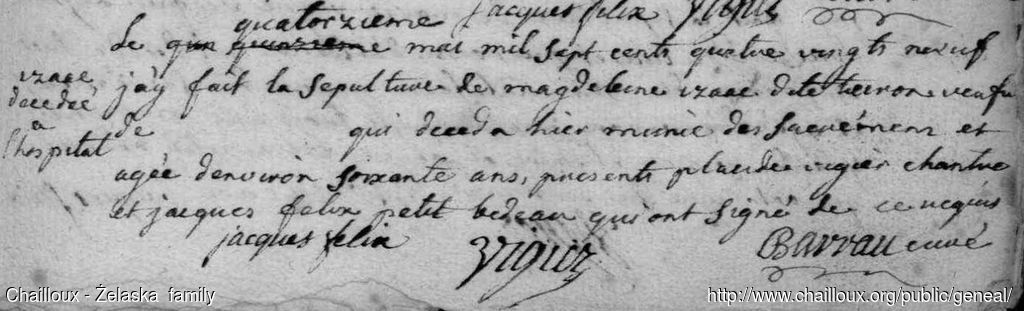 jacques felix Vigier
quatorzieme
Le qua quinzieme mai mil sept cents quatre vingts neuf
izaac
decedée
a
l'hospital
j'ay fait la sepulture de magdeleine izaac dite veufve
de qui deceda hier munie des sacrémens et
agée denviron soixante ans, presents placide vigier chantre
et jacques felix petit bedeau qui ont signé de ce requis
jacques felix Vigier Barrau curé
Chailloux - Želaska family
http://www.chailloux.org/public/geneal/